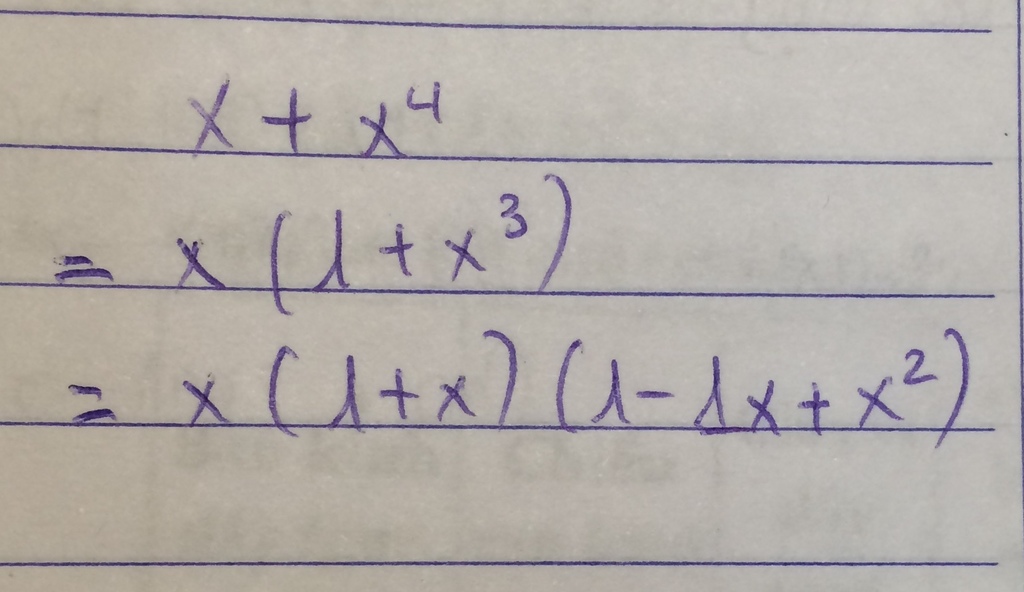 x + x⁴
= x (1 + x³)
= x (1 + x) (1 - 1x + x²)